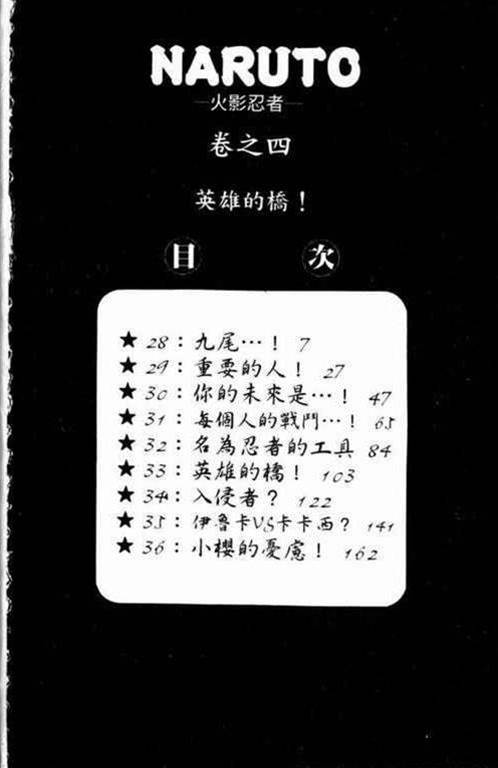 NARUTO
火影忍者
卷之四
英雄的橋！
目 次
★ 28：九尾…！ 7
★ 29：重要的人！ 27
★ 30：你的未來是…！ 47
★ 31：每個人的戰鬥…！ 65
★ 32：名為忍者的工具 84
★ 33：英雄的橋！ 103
★ 34：入侵者？ 122
★ 35：伊魯卡VS卡卡西？ 141
★ 36：小櫻的憂慮！ 162